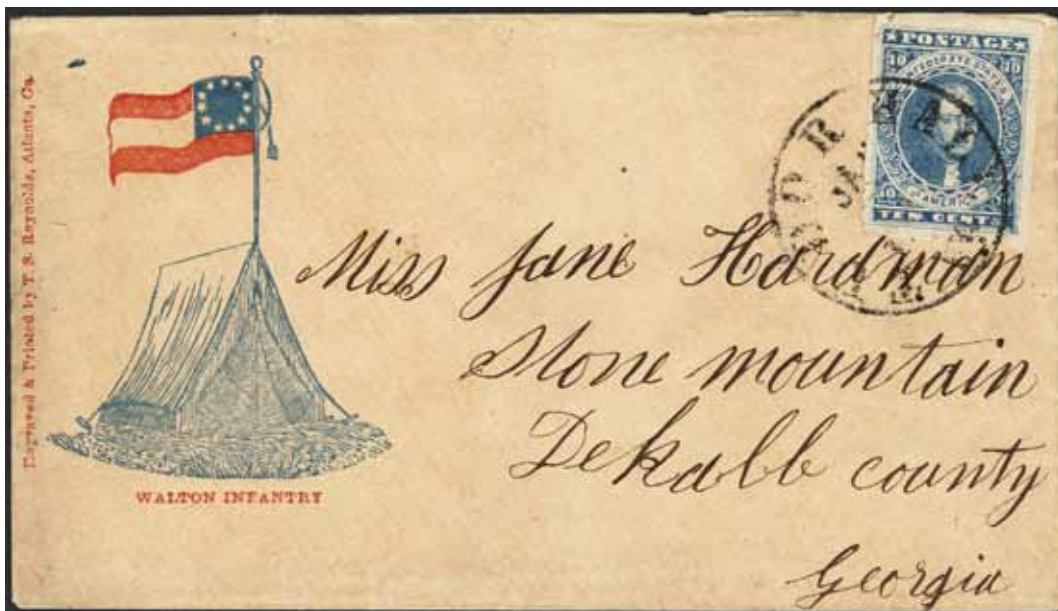 Engraved & Printed by T. S. Reynolds, Atlanta, Ga.
WALTON INFANTRY
POSTAGE
10 10
CONFEDERATE STATES
OF AMERICA
10
TEN CENTS
NORFOLK
JAN
Miss Jane Hardman
Stone mountain
Dekalb county
Georgia